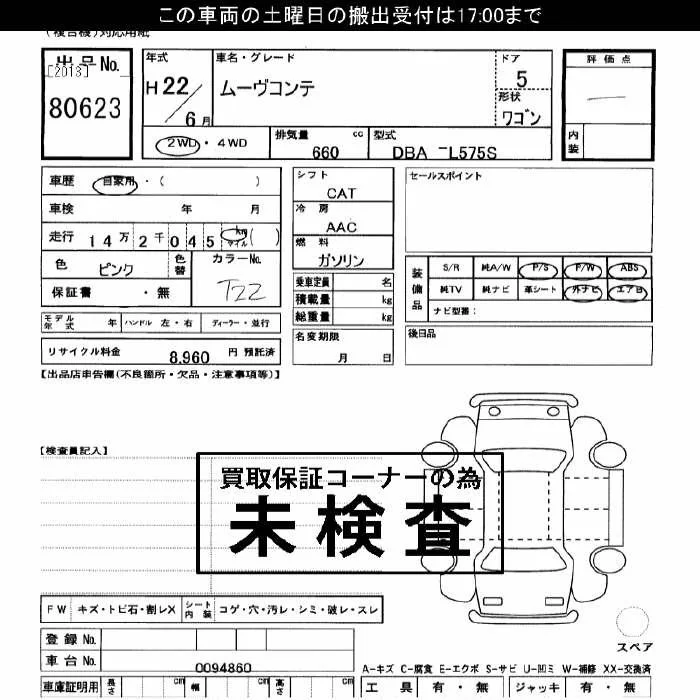 この車両の土曜日の搬出受付は17:00まで
(複合機)対応用紙
出品No.
[2013]
80623
年式
H22/6月
車名・グレード
ムーヴコンテ
ドア
5
形状
ワゴン
評価点
内装
2WD・4WD
排気量 cc
660
型式
DBA -L575S
車歴 自家用・( )
車検 年 月
走行 14万2千045 km マイル ( )
色 ピンク
色替
カラーNo.
T22
保証書 ・無
シフト
CAT
冷房
AAC
燃料
ガソリン
乗車定員 名
積載量 kg
総重量 kg
名変期限
月 日
セールスポイント
装備品
S/R 純A/W P/S P/W ABS
純TV 純ナビ 革シート 外ナビ エアB
ナビ型番:
後日品
モデル年式 年 ハンドル 左・右 ディーラー・並行
リサイクル料金 8,960 円 預託済
【出品店申告欄(不良箇所・欠品・注意事項等)】
【検査員記入】
買取保証コーナーの為
未検査
FW キズ・トビ石・割レX シート内装 コゲ・穴・汚レ・シミ・破レ・スレ
登録No.
車台No. 0094860
スペア
A-キズ C-腐食 E-エクボ S-サビ U-凹ミ W-補修 XX-交換済
車庫証明用 長さ cm 幅 cm 高さ cm
工具 有・無 ジャッキ 有・無